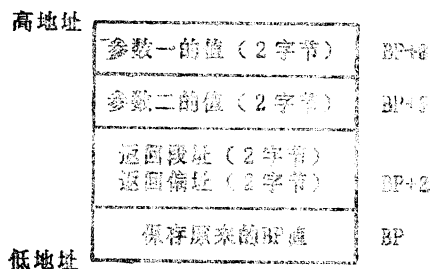 高地址
参数一的值(2字节)
参数二的值(2字节)
返回段址(2字节)
返回偏址(2字节) BP+2
保存原来的BP值 BP
低地址